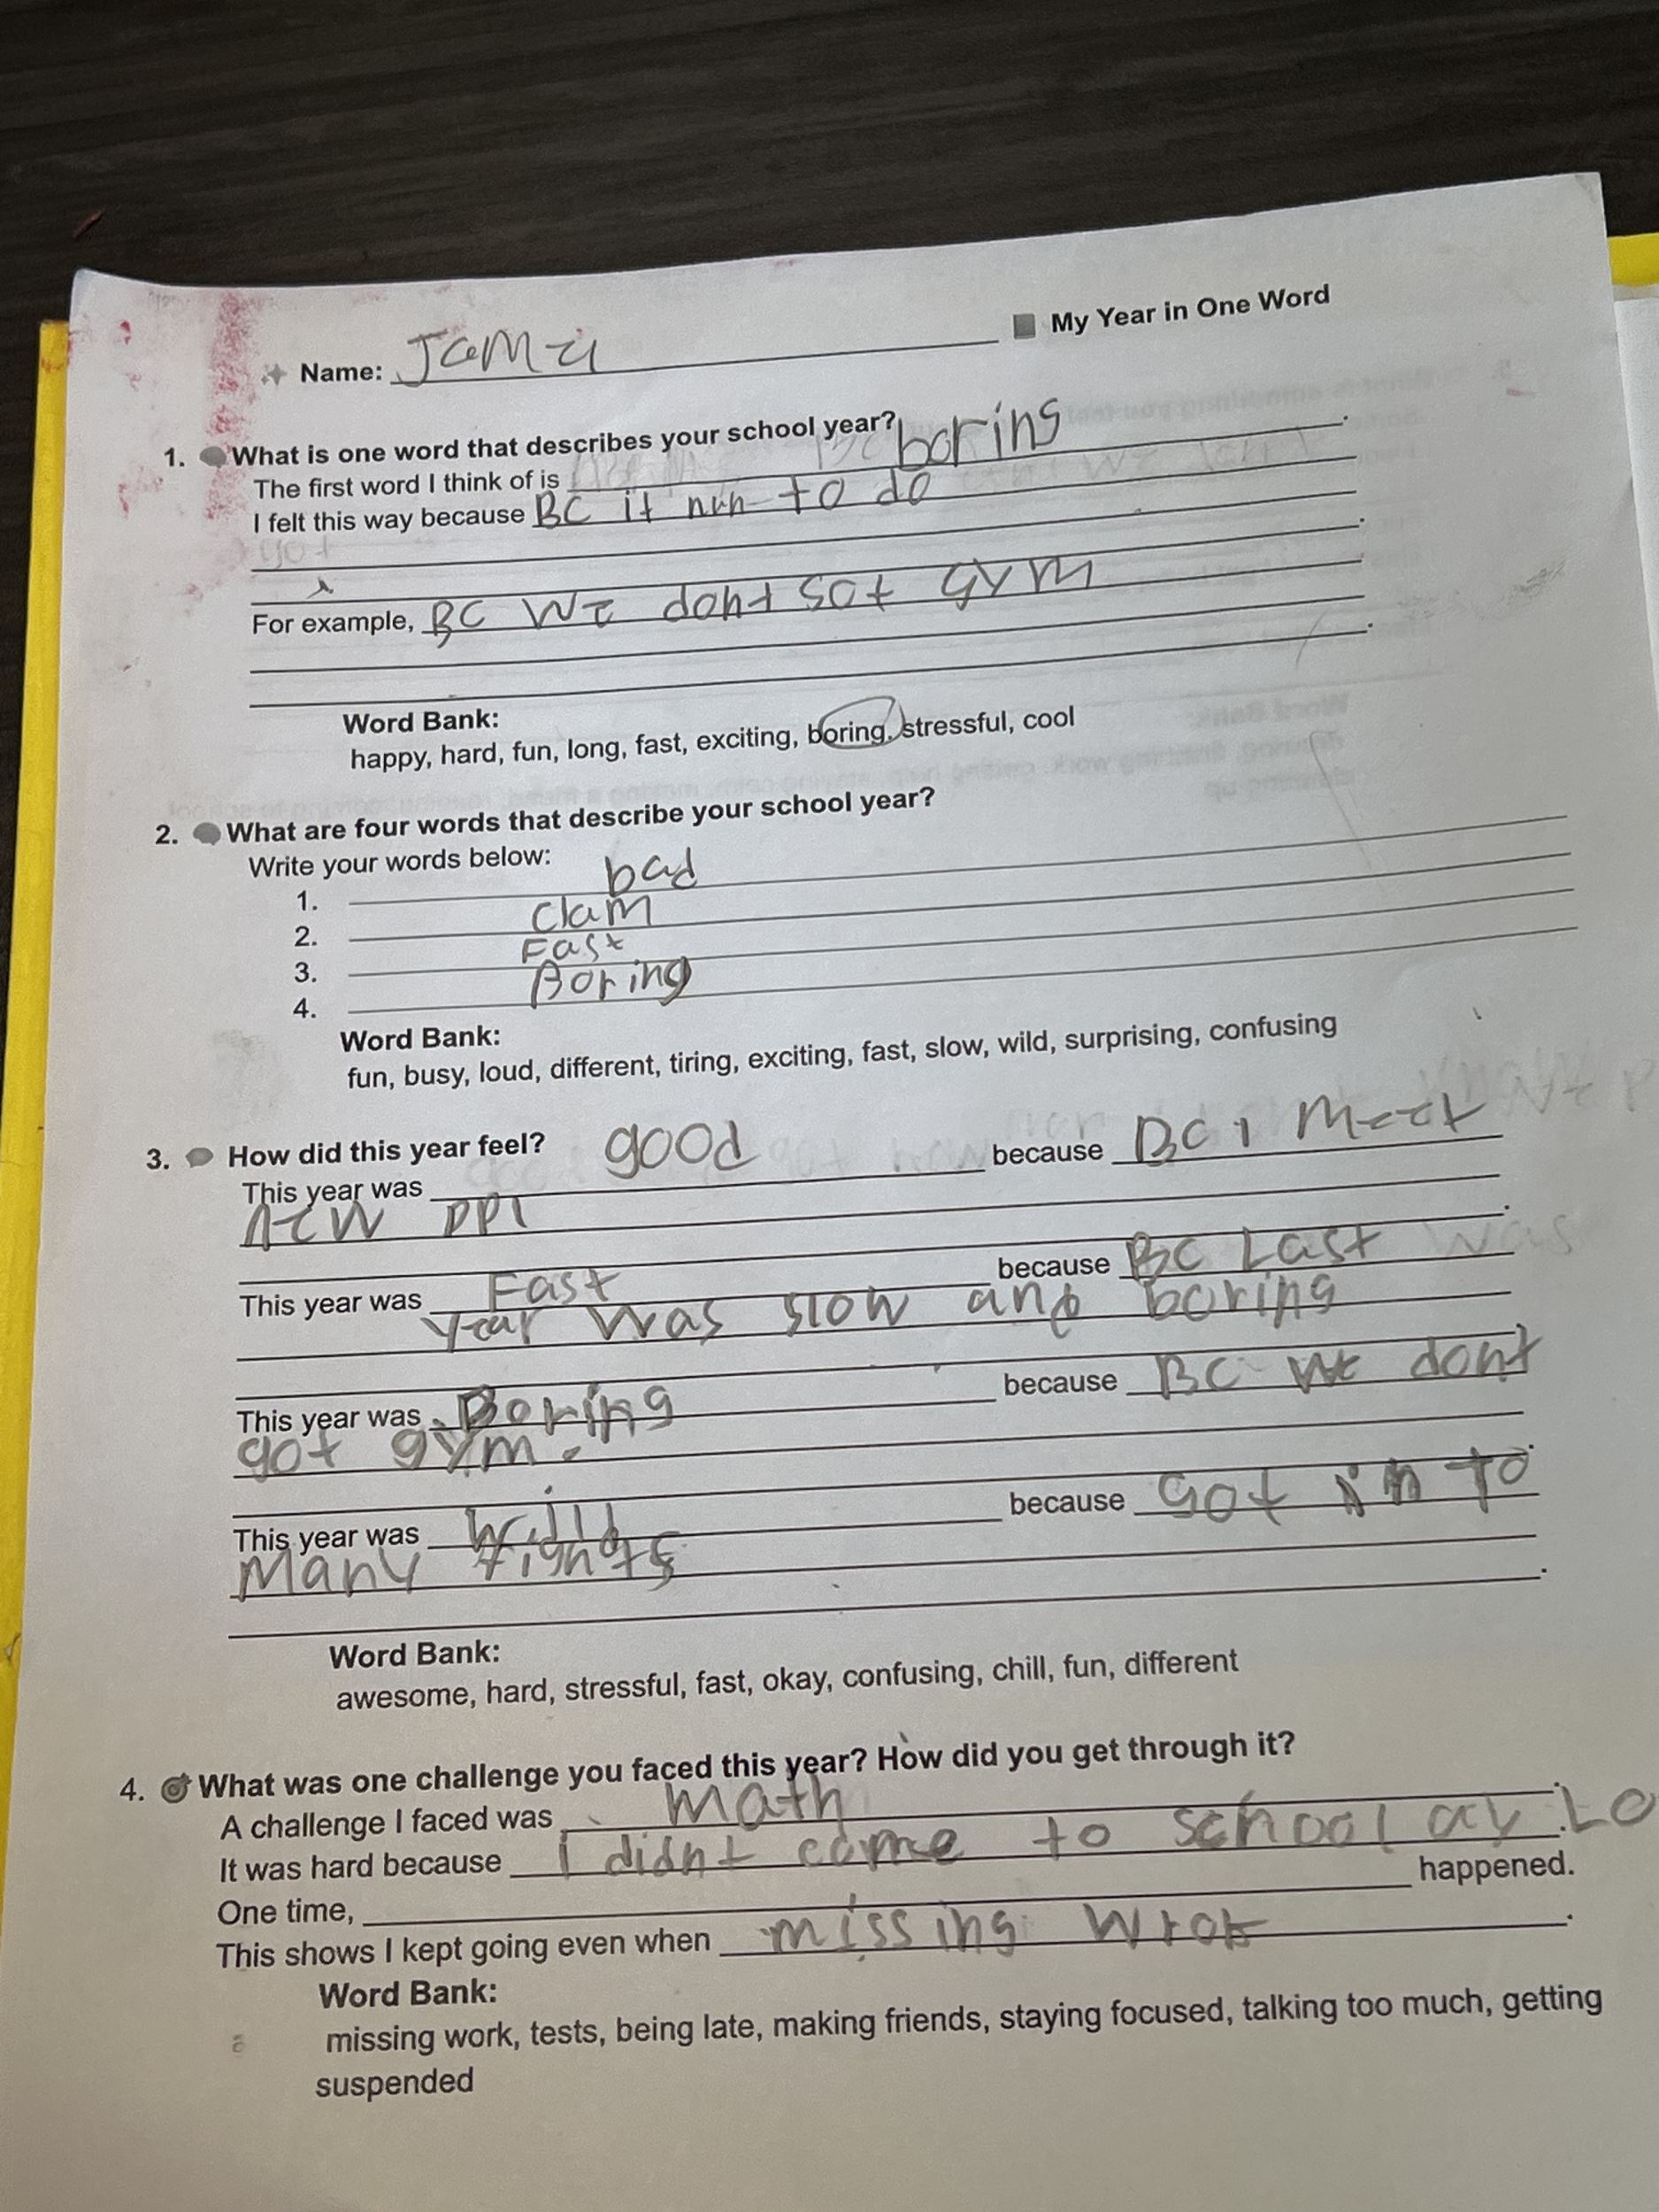 My Year in One Word
Name:
1. What is one word that describes your school year?
The first word I think of is boring.
I felt this way because BC it nun to do
got
For example, BC We dont got GYM
Word Bank:
happy, hard, fun, long, fast, exciting, boring, stressful, cool
2. What are four words that describe your school year?
Write your words below:
1. bad
2. clam
3. Fast
4. Boring
Word Bank:
fun, busy, loud, different, tiring, exciting, fast, slow, wild, surprising, confusing
3. How did this year feel?
This year was good because BC I Meet
new ppl
This year was Fast because BC Last was
Year was slow and boring
This year was Boring because BC We dont
got gym.
This year was Wild because Got in to
Many fights
Word Bank:
awesome, hard, stressful, fast, okay, confusing, chill, fun, different
4. What was one challenge you faced this year? How did you get through it?
A challenge I faced was math.
It was hard because I didnt come to school ay. Lo
One time, happened.
This shows I kept going even when missing wrok.
Word Bank:
missing work, tests, being late, making friends, staying focused, talking too much, getting
suspended